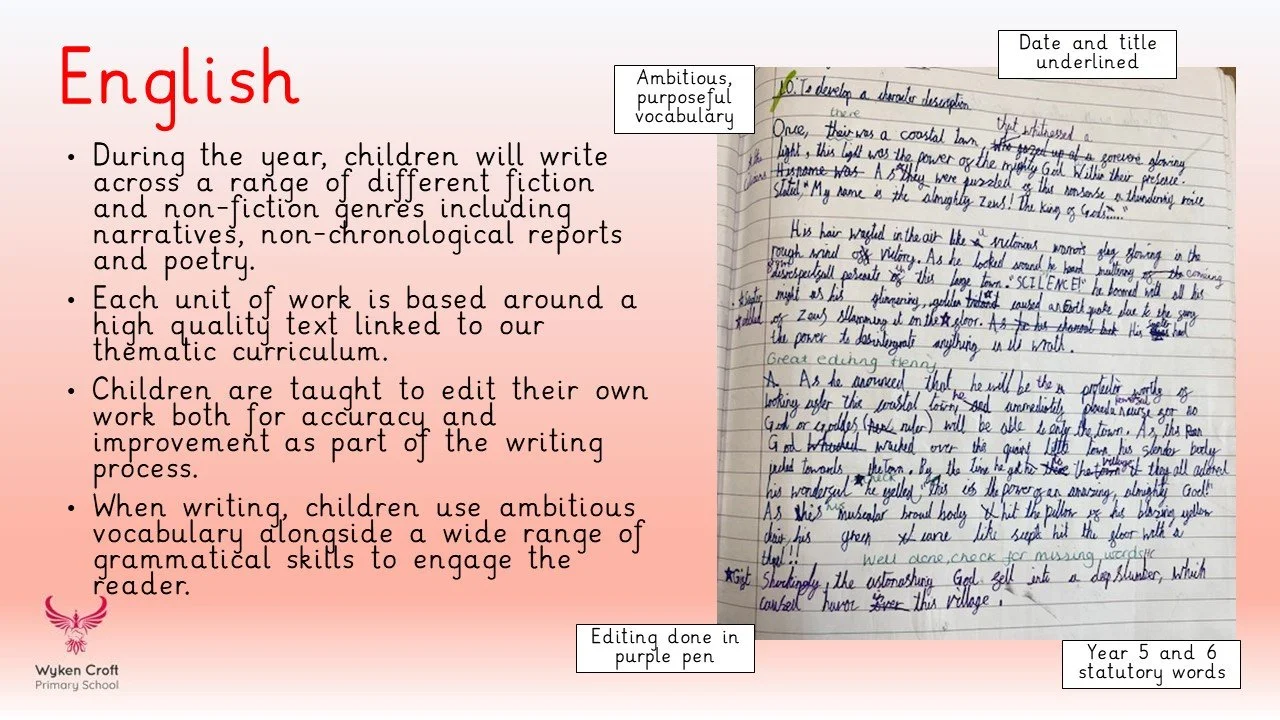 English
• During the year, children will write
across a range of different fiction
and non-fiction genres including
narratives, non-chronological reports
and poetry.
• Each unit of work is based around a
high quality text linked to our
thematic curriculum.
• Children are taught to edit their own
work both for accuracy and
improvement as part of the writing
process.
• When writing, children use ambitious
vocabulary alongside a wide range of
grammatical skills to engage the
reader.
Wyken Croft
Primary School
Ambitious,
purposeful
vocabulary
Date and title
underlined
L.O: To develop a character description
there
that whitnessed a
Once, their was a coastal town, who gazed up at a forevere glowing
light, this light was the power of the mighty God. Within their presence.
His name was As they were puzzled of this nonsense a thundering voice
stated, "My name is the almighty Zeus! The King of Gods....."
His hair in the air like a victorious warriors flag glowing in the
rough wind of victory. As he looked around he heard muttering coming
of this large town. "SCILENCE!" he boomed with all his
might as his glimmering, golden caused an Earth quake due to the
of Zeus slamming it on the floor. As his His had
the power to desintergrate anything in its wrath.
Great editing Henry
As he anounced that he will be the protector worthy of
looking after this coastal town, he immediately no
God or goddes ( ruler) will be able to enter the town. As this
God watched over this quaint little town, his slender body
towards the town. By the time he got to the village they all adored
his wonderful he yelled, "this is the power of an amazing, almighty God!"
As his muscular broud body hit the of his blazing yellow
his green like hit the floor with a
thud!!
Well done, check for missing words HC
Shockingly, the astonashing God fell into a deep slumber, which
havoc over this village.
Editing done in
purple pen
Year 5 and 6
statutory words